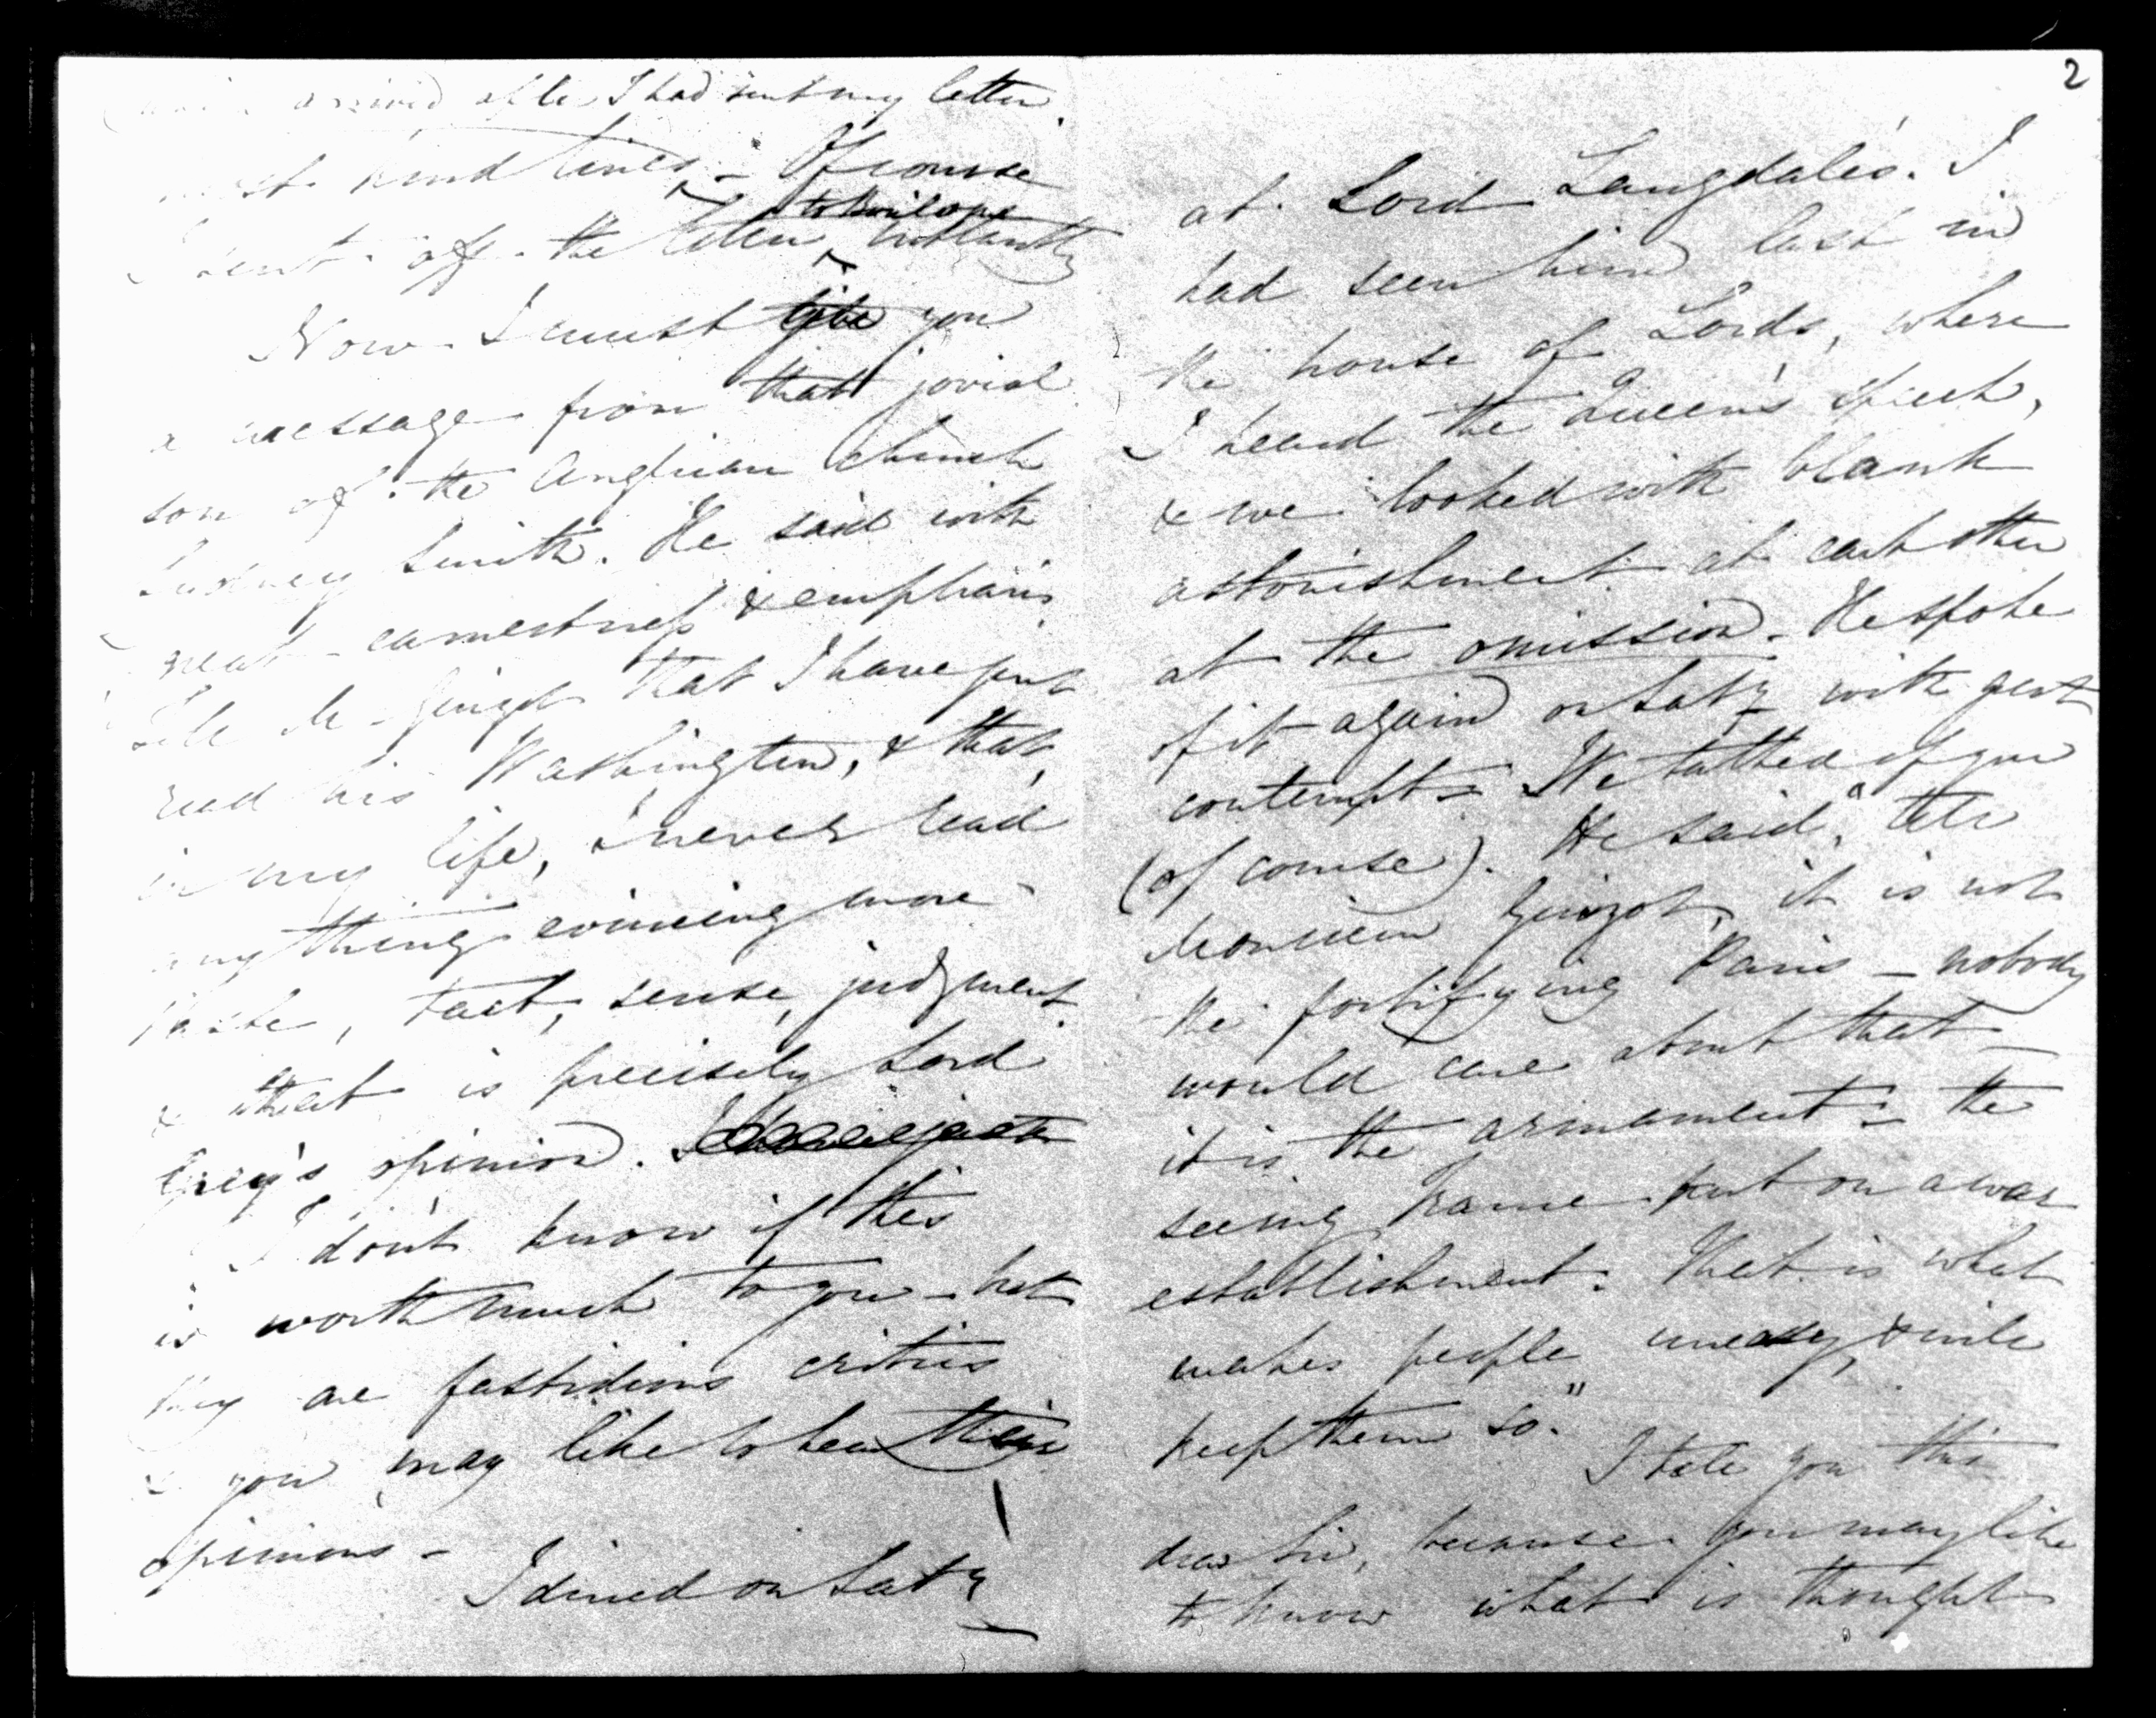 arrived after I had sent my letter
most kind lines, - Of course
I sent off the letter, instantly
Now I must give you
a message from that jovial
son of the Anglican church
Sydney Smith. He said with
great earnestness & emphasis
Tell M. Guizot that I have just
read his Washington, & that,
in my life, I never read
any thing evincing more
taste, tact, sense, judgment
& that is precisely Lord
Grey's opinion.
I don't know if this
is worth much to you - but
they are fastidious critics
& you may like to hear their
opinions -
I dined on Saty
2
at Lord Langdale's. I
had seen him last in
the house of Lords, where
I heard the Queen's speech,
& we looked with blank
astonishment at each other
at the omission. He spoke
of it again on Saty with great
contempt - We talked of you
(of course). He said, "tell
Monsieur Guizot, it is not
the fortifying Paris - nobody
would care about that -
it is the armament - the
seeing France put on a war
establishment. That is what
makes people uneasy, & will
keep them so."
I tell you this
dear Sir, because you may like
to know what is thought